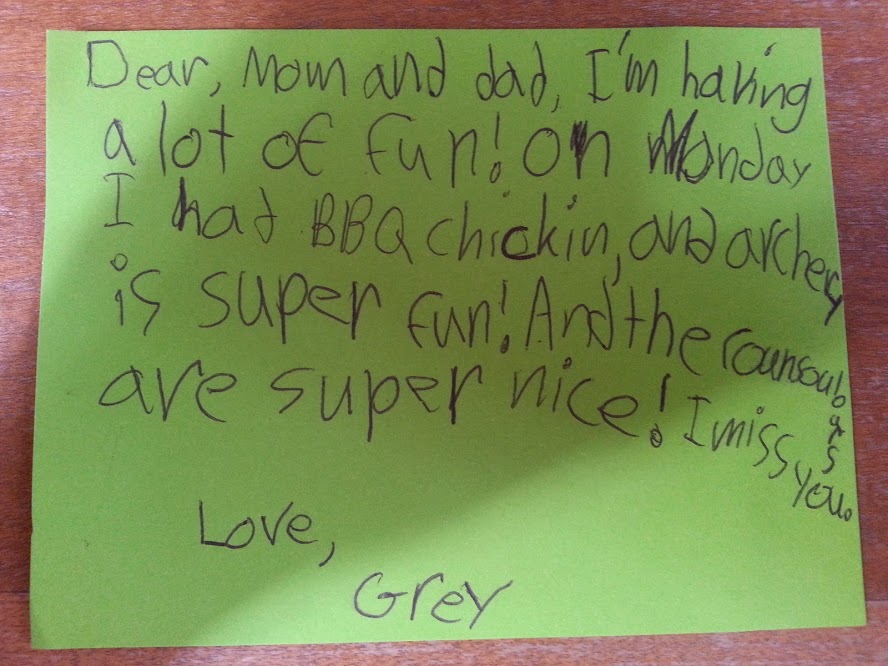 Dear, Mom and dad, I'm having
a lot of fun! On Monday
I had BBQ chickin, and archery
is super fun! And the
are super nice! I miss you.
Love,
Grey